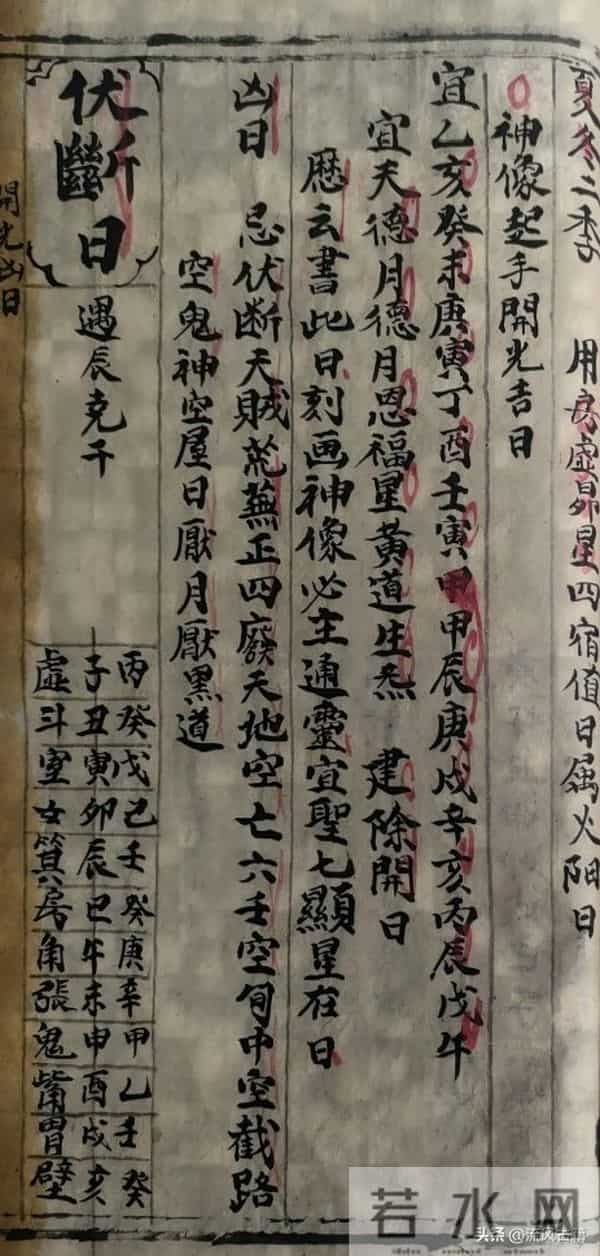 夏冬二季 用房虚昴星四宿值日属火阳日
神像起手開光吉日
宜乙亥癸未庚寅丁酉壬寅甲甲辰庚戌辛亥丙辰戊午
宜天德月德月恩福星黄道生炁 建除開日
歷云書此日刻画神像必主通靈宜聖七顯星在日
凶日 忌伏断天贼荒蕪正四廢天地空亡六壬空旬中空截路
空鬼神空屋日厭月厭黑道
伏斷日
遇辰克干
丙癸戊己壬癸庚辛甲乙壬癸
子丑寅卯辰巳午未申酉戌亥
虚斗室女箕房角張鬼觜胃壁
開光凶日
若水网
头条